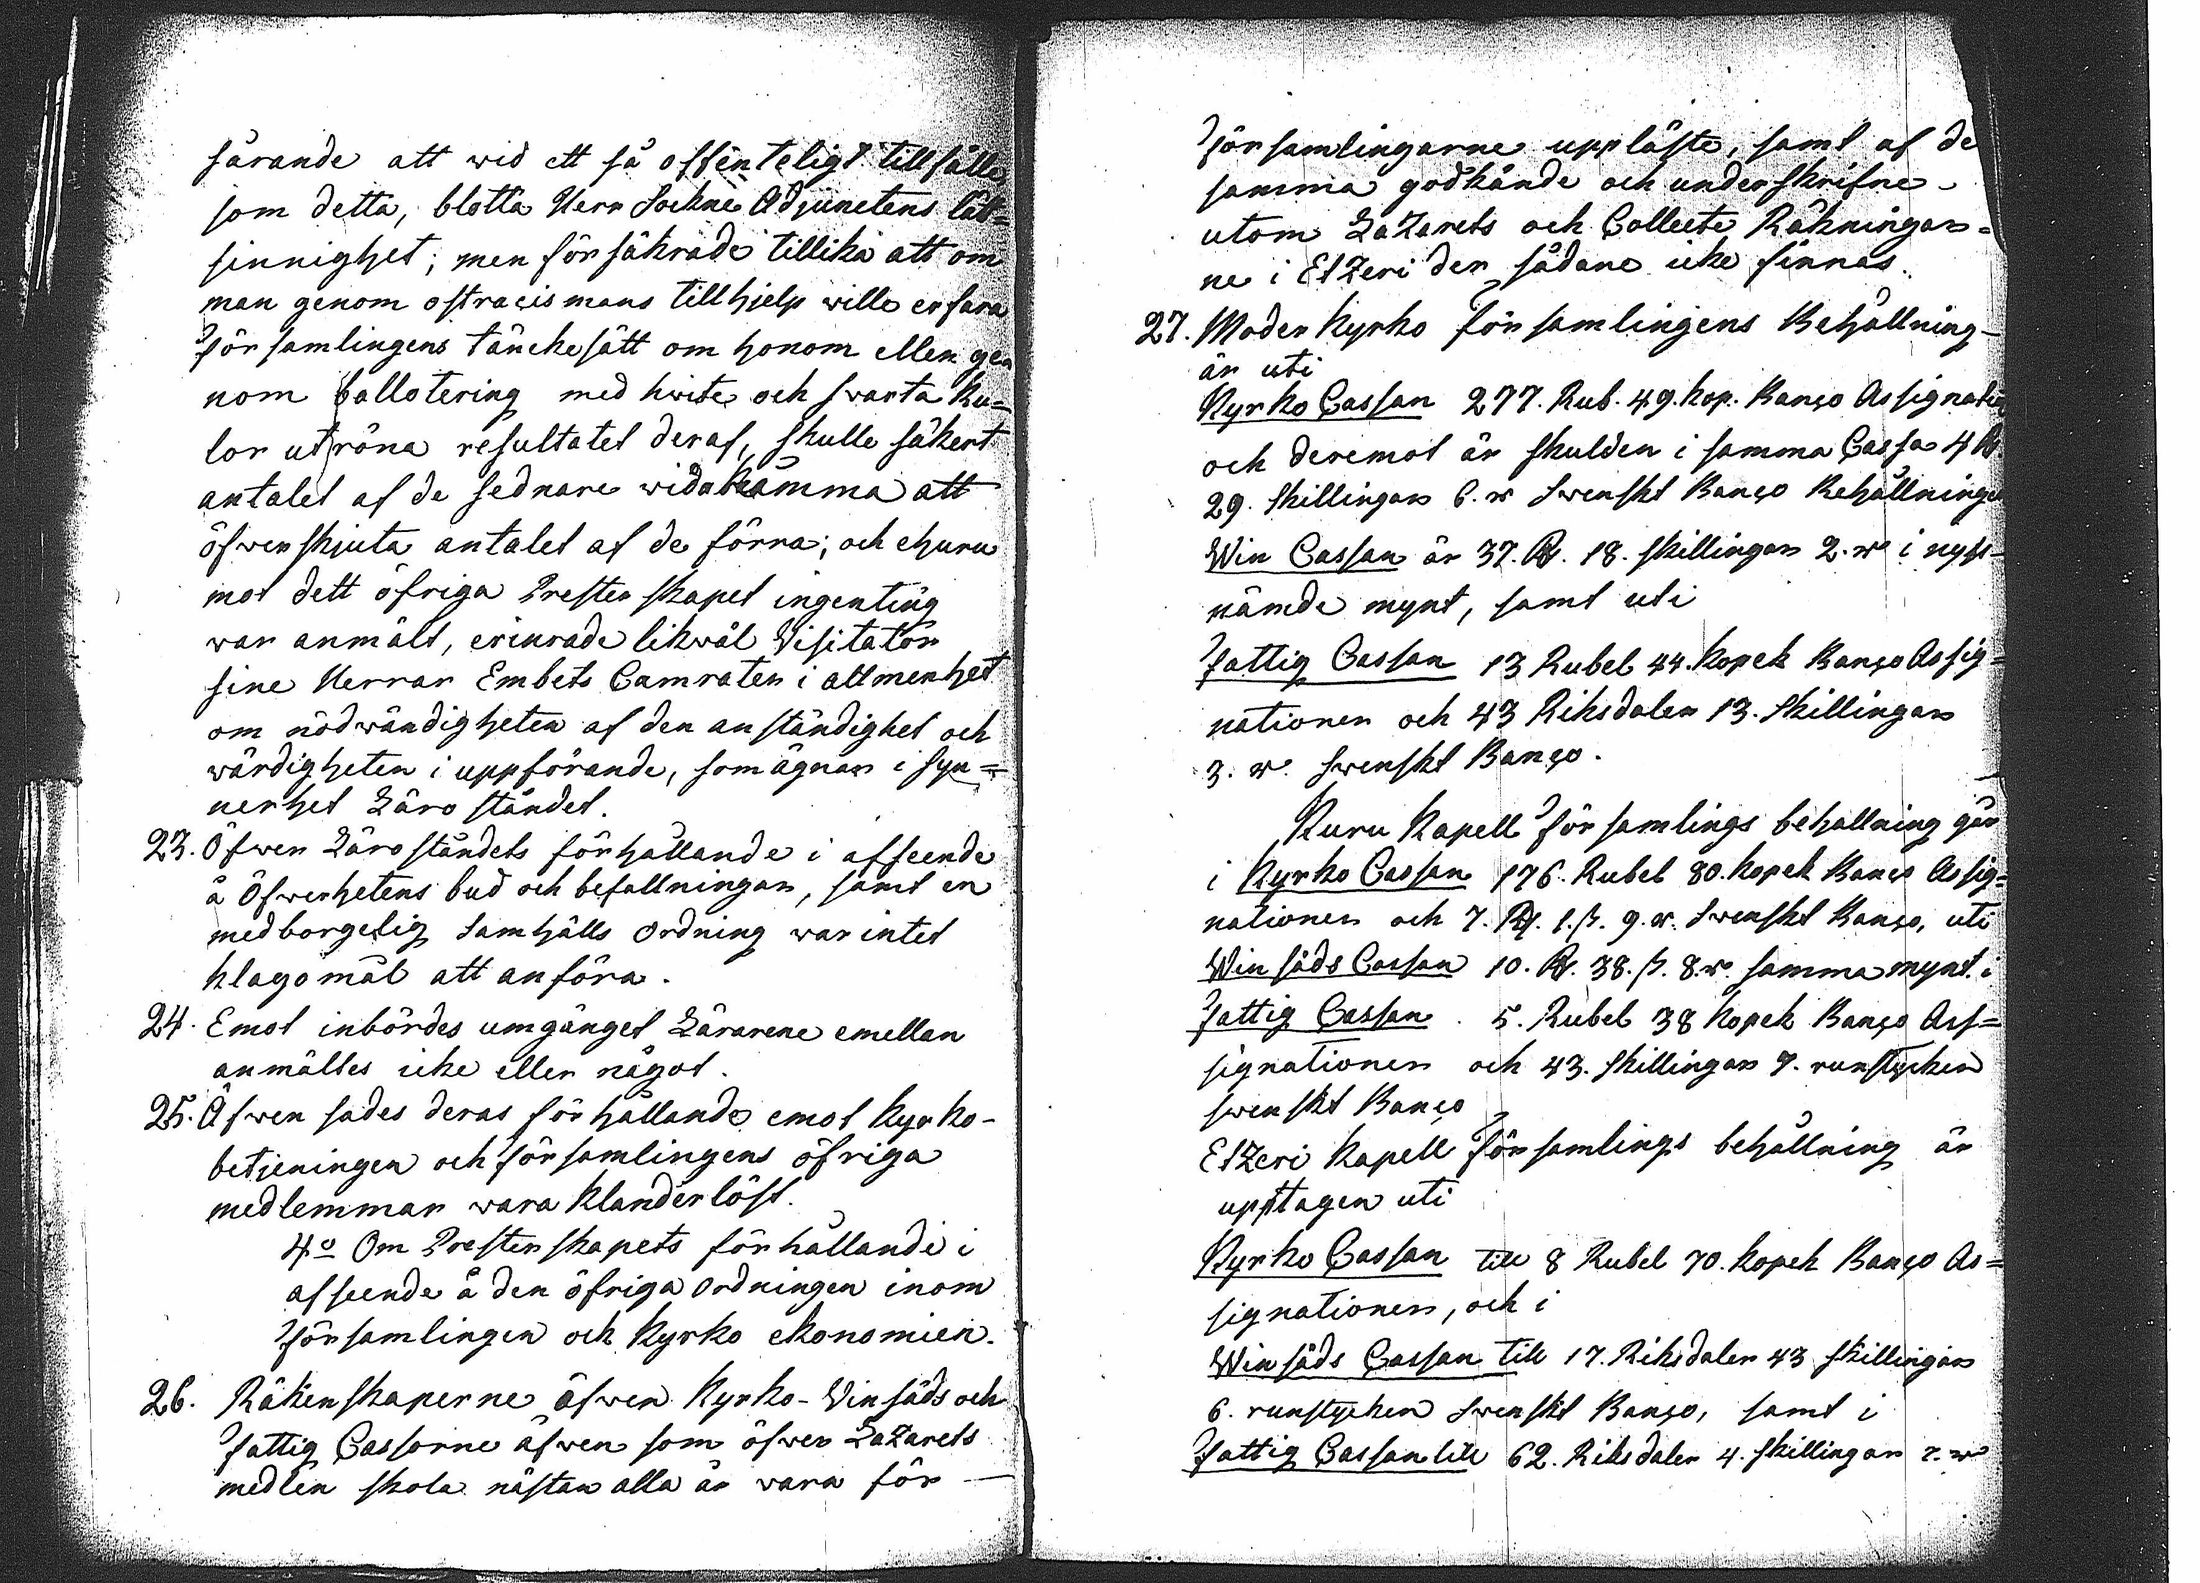 sårande att wid ett så offenteligt tillfälle
som detta, blotta Herr Sockne Adjunctens lätt=
sinnighet; men försäkrade tillika att om
man genom ostracismens tillhjelp wille erfara
Församlingens tänckesätt om honom eller ge
nom ballotering med hwita och swarta Ku=
lor utröna resultatet deraf, skulle säkert
antalet af de sednare widakomma att
öfwerskjuta antalet af de förra; och ehuru
mot dett öfriga Presterskapet ingenting
war anmält, erinrade likwäl Visitator
sine Herrar Embets Camrater i allmenhet
om nödwändigheten af den anständighet och
wärdigheten i uppförande, som ägnar i syn=
nerhet Läro ståndet.
23. Öfwer Läroståndets förhållande i afseende
å Öfwerhetens bud och befallningar, samt en
medborgelig Samhälls ordning war intet
klagomål att anföra.
24. Emot inbördes umgänget Lärarene emellan
anmältes icke eller något.
25. Äfwen sades deras förhållande emot Kyrko-
betjeningen och Församlingens öfriga
medlemmar wara klanderlöst.
4o Om Presterskapets förhållande i
afseende å den öfriga ordningen inom
Församlingen och Kyrko ekonomien.
26. Räkenskaperne öfwer Kyrko- Vinsäds och
Fattig Cassorne äfwen som öfwer Lazarets
medlen skola nästan alla år wara för
Församlingarne uppläste, samt af de
samma godkände och underskrifne
utom Lazarets och Collecte Räkningar=
ne i Etzeri der sådane icke finnas.
27. Moder Kyrko Församlingens Behållning
är uti
Kyrko Cassan 277. Rub. 49. kop. Banço Assignatio
och deremot är skulden i samma Cassa 4 R
29. Skillingar 6. r Swenskt Banço Behållningen
Win Cassan är 37. R. 18. skillingar 2. r i nyss=
nämde mynt, samt uti
Fattig Cassan 13 Rubel 44. Kopek Banço Assig=
nationer och 43 Riksdaler 13. Skillingar
3. r. Swenskt Banço.
Kuru Kapell Församlings behållning går
i Kyrko Cassan 176. Rubel 80. Kopek Banço Assig=
nationer och 7. R. 1. ß. 9. r. Swenskt Banço, uti
Win säds Cassan 10. R. 38. ß. 8. r. samma mynt i
Fattig Cassan 5. Rubel 38 Kopek Banço Ass=
signationer och 43. Skillingar 7. runstycken
swenskt Banço
Etzeri Kapell Församlings behållning är
upptagen uti
Kyrko Cassan till 8 Rubel 70. kopek Banço As=
signationer, och i
Win säds Cassan till 17. Riksdaler 43 skillingar
6. runstycken Swenskt Banço, samt i
Fattig Cassan till 62. Riksdaler 4. Skillingar 2. r